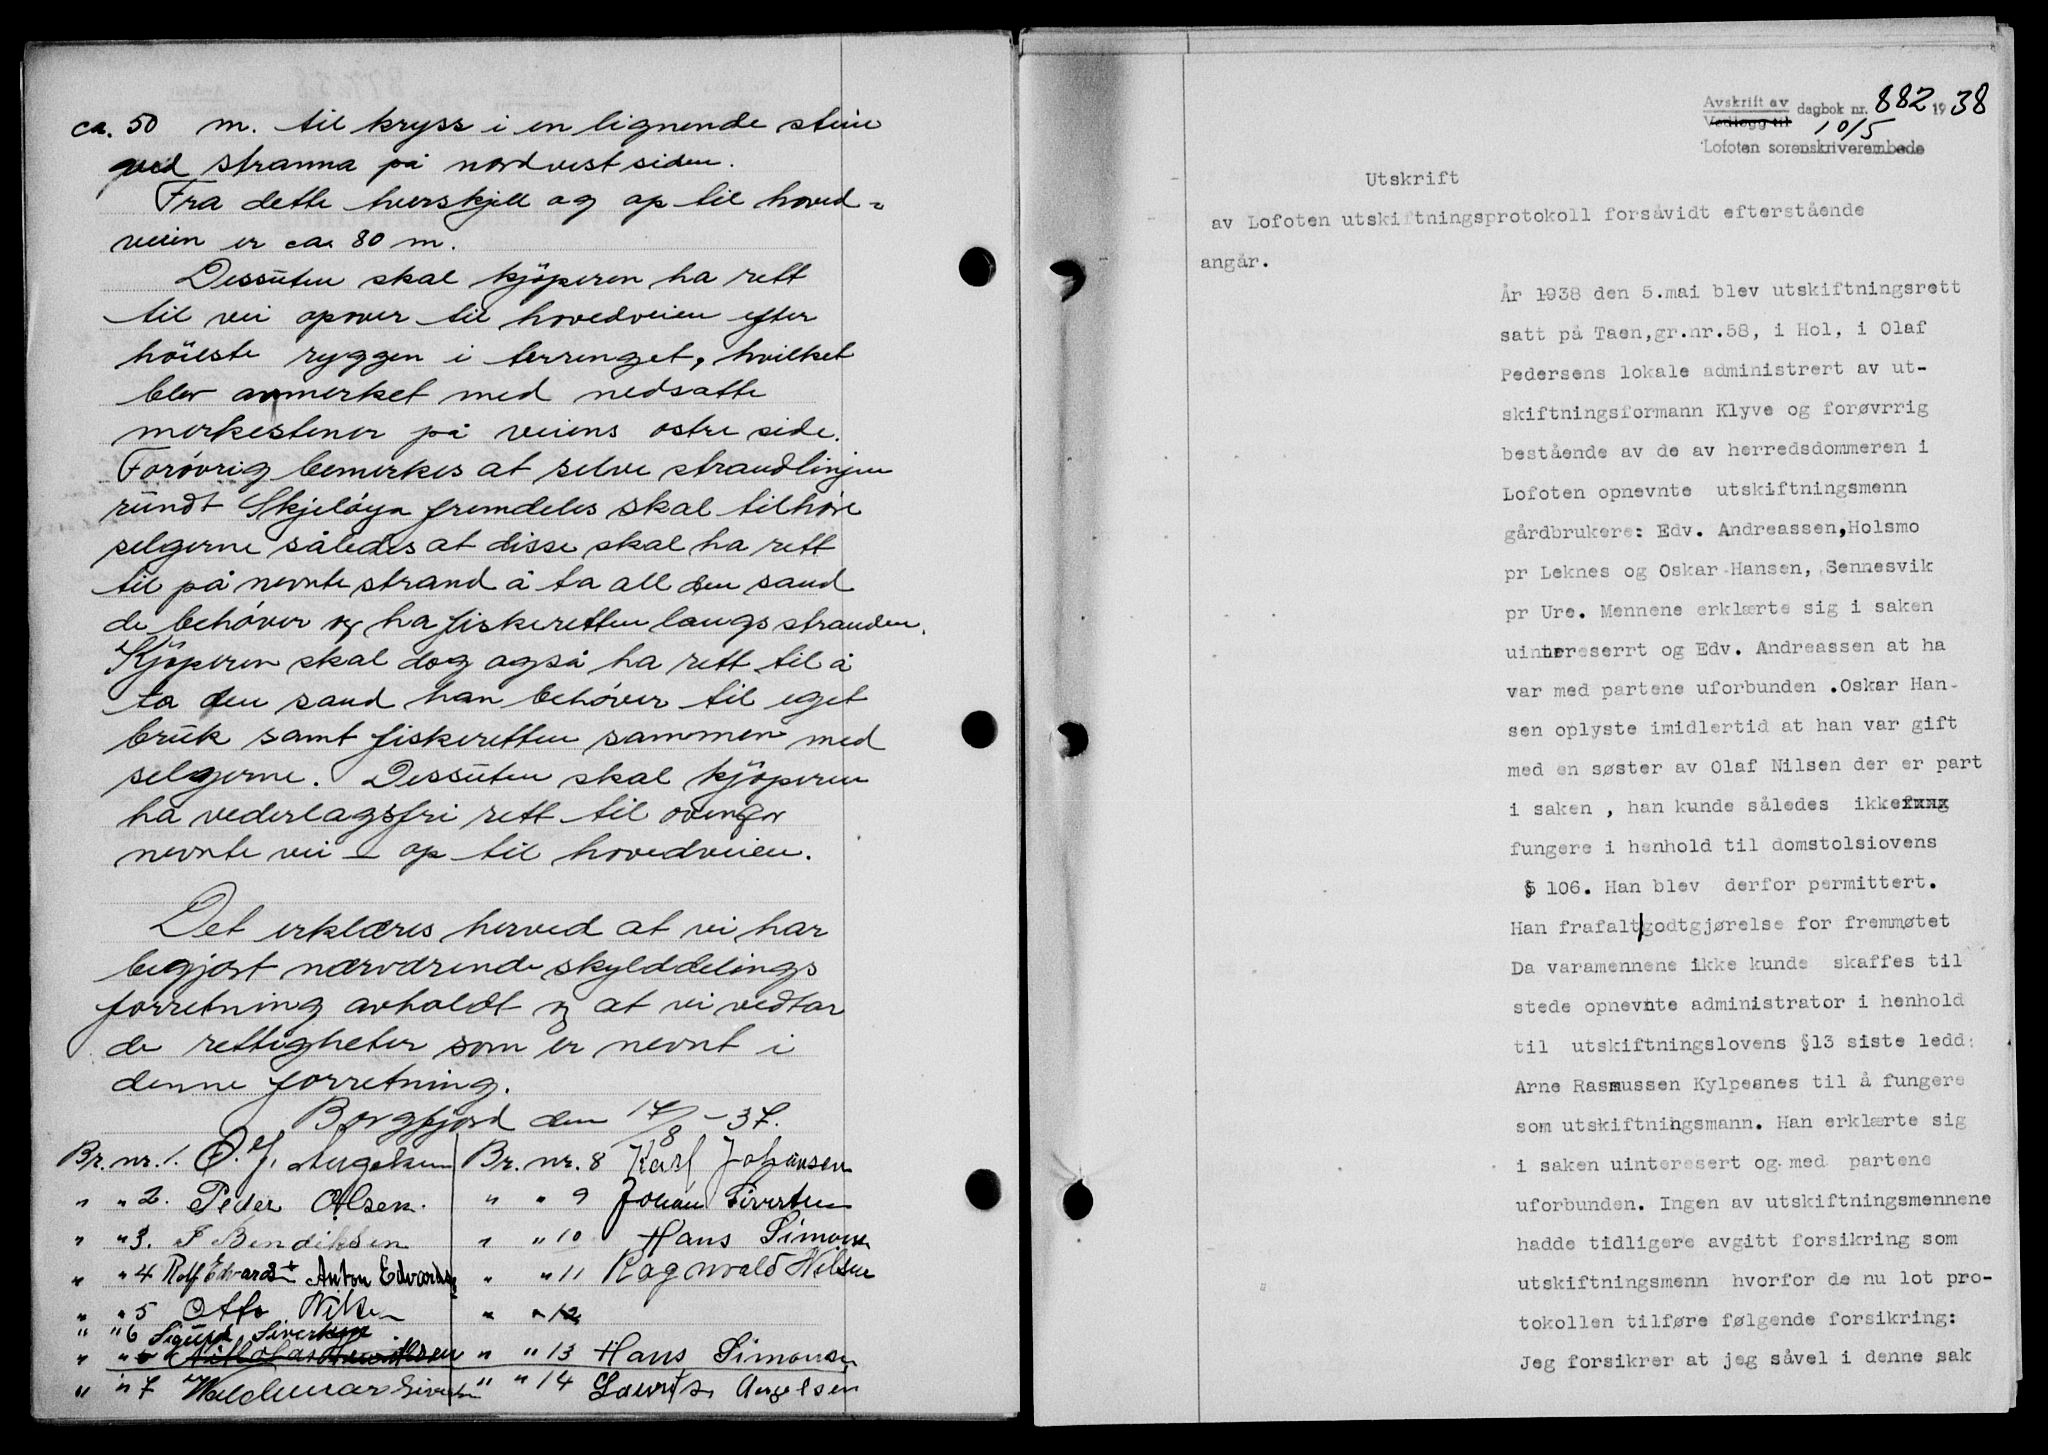 ca. 50 m. til kryss i en lignende stein
ved stranna på nordvestsiden.
Fra dette hverskjell og op til hoved-
veien er ca 80 m.
Dessuten skal kjöperen ha rett
til vei opover til hovedveien efter
höieste ryggen i terrenget, hvilket
blev anmerket med nedsatte
merkestener på veiens østre side.
Forövrig bemerkes at selve strandlinjen
rundt Skjelöya fremdeles skal tilhöre
selgerne således at disse skal ha rett
til på nevnte strand å ta all den sand
de behöver og ha fiskeretten langs stranden.
Kjöperen skal dog også ha rett til å
ta den sand han behöver til eget
bruk samt fiskeretten sammen med
selgerne. Dessuten skal kjöperen
ha vederlagsfri rett til ovenfor
nevnte vei – op til hovedveien.
Det erklæres herved at vi har
begjært nærværende skylddelings
forretning avholdt og at vi vedtar
de rettigheter som er nevnt i
denne forretning.
Borgfjord den 17/8 – 37.
Br. nr. 1. O. J. Angelsen Br. nr. 8 Karl Johansen
" " 2. Peder Olsen. " " 9 Johan Sivertsen
" " 3. Bendiksen " " 10 Hans Simonsen
" " 4 Rolf Edvards + Anton Edvards " " 11 Ragnvald Nilsen
" " 5 Otto Nilsen " " 12
" " 6 Sigurd Sivertsen
" " " " 13 Hans Simonsen
" " 7 Waldemar Sivertsen " " 14 Laurits Angelsen
Avskrift av
Vedlegg til dagbok nr. 882 1938
10/5
Lofoten sorenskriverembede
Utskrift
av Lofoten utskiftningsprotokoll forsåvidt efterstående
angår.
År 1938 den 5.mai blev utskiftningsrett
satt på Taen,gr.nr.58, i Hol, i Olaf
Pedersens lokale administrert av ut-
skiftningsformann Klyve og forøvrrig
bestående av de av herredsdommeren i
Lofoten opnevnte utskiftningsmenn
gårdbrukere: Edv. Andreassen,Holsmo
pr Leknes og Oskar Hansen, Sennesvik
pr Ure. Mennene erklærte sig i saken
uintereserrt og Edv. Andreassen at ha
var med partene uforbunden .Oskar Han-
sen oplyste imidlertid at han var gift
med en søster av Olaf Nilsen der er part
i saken , han kunde således ikkefung
fungere i henhold til domstolsiovens
§ 106. Han blev derfor permittert.
Han frafalt|godtgjørelse for fremmøtet
Da varamennene ikke kunde skaffes til
stede opnevnte administrator i henhold
til utskiftningslovens §13 siste ledd:
Arne Rasmussen Kylpesnes til å fungere
som utskiftningsmann. Han erklærte sig
i saken uinteresert og med partene
uforbunden. Ingen av utskiftningsmennene
hadde tidligere avgitt forsikring som
utskiftningsmenn hvorfor de nu lot pro-
tokollen tilføre følgende forsikring:
Jeg forsikrer at jeg såvel i denne sak